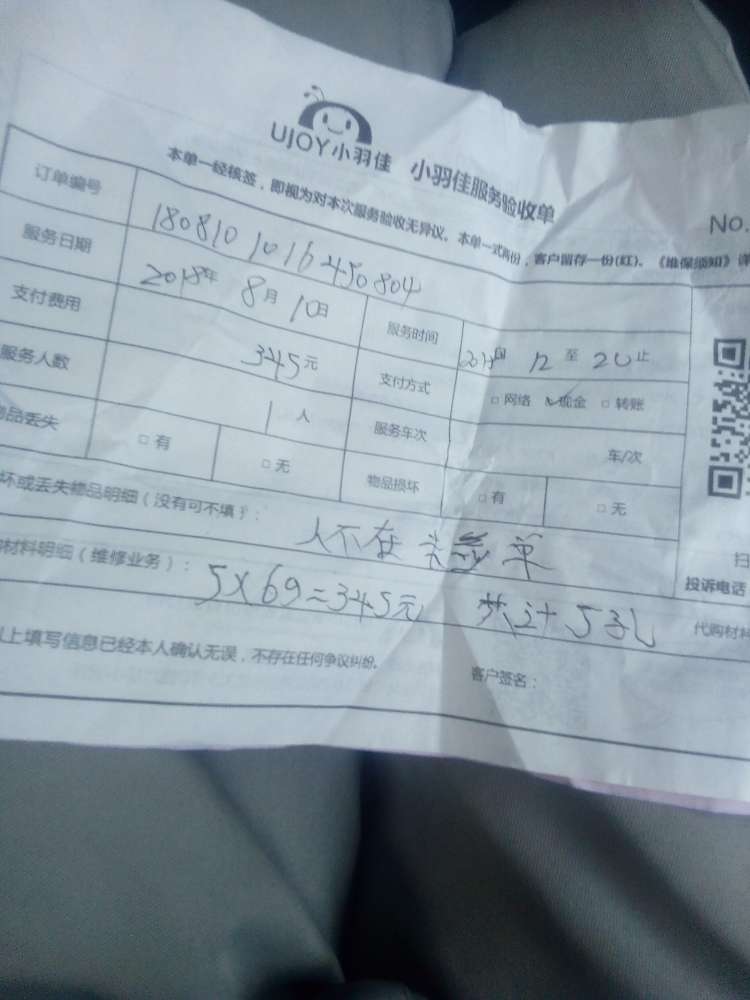 UJOY小羽佳 小羽佳服务验收单
No.
本单一经核签，即视为对本次服务验收无异议。本单一式两份，客户留存一份(红)。《维保须知》详
订单编号 180810 1016450804
服务日期 2018年 8月 10日 服务时间 12 至 20 止
支付费用 345元 支付方式 □ 网络 现金 □ 转账
服务人数 1 人 服务车次 车/次
物品丢失 □ 有 □ 无 物品损坏 □ 有 □ 无
坏或丢失物品明细（没有可不填）： 人不在 未签单
材料明细（维修业务）： 5×69=345元 共计5孔
扫
投诉电话
代购材料
上填写信息已经本人确认无误，不存在任何争议纠纷。 客户签名：